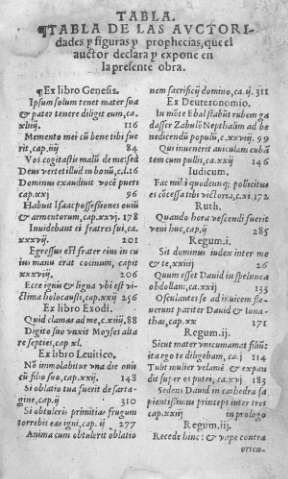 TABLA.
¶TABLA DE LAS AVCTORI-
dades y figuras y prophecias, que el
auctor declara y expone en
la presente obra.
¶Ex libro Genesis.
Ipsum solum tenet mater sua
& pater tenere diligit eum, ca.
xliiij. 116
Memento mei cū bene tibi fue
rit, cap. iiij 84
Vos cogitastis malū de me: sed
Deus vertet illud in bonū, c.l. 16
Dominus exaudiuit vocē pueri
cap. xxj 96
Habuit Isaac possessiones ouiū
& armentorum, cap. xxvj. 178
Inuidebant ei fratres sui, ca.
xxxvij. 201
Egressus est frater eius in cu
ius manu erat coccinum, capit
xxxviij. 206
Ecce ignis & ligna vbi est vi-
ctima holocausti, cap. xxij 256
Ex libro Exodi.
Quid clamas ad me, c.xiiij, 88
Digito suo vnxit Moyses alta
re septies, cap xl.
Ex libro Leuitico.
Nō immolabitur vna die ouis
cū filio suo, cap. xxij. 148
Si oblatio tua fuerit de sarta-
gine, cap. ij 310
Si obtuleris primitias frugum
torrebis eas igni, cap. ij 277
Anima cum obtulerit oblatio
nem sacrificij domino, ca. ij. 311
Ex Deuteronomio.
In mōte Ebal stabūt ruben ga
d asser Zabulō Nepthalim ad be
nedicendū populū, c.xxvij. 99
Qui inuenerit auiculam cubā
tem cum pullis, ca. xxij 146
Iudicum.
Fac mihi quodcunq; pollicitus
es cōcessa tibi victoria, c.xi. 172
Ruth.
Quando hora vescendi fuerit
veni huc, cap. ij 285
Regum. i.
Sit dominus iudex inter me
& te, xxiiij 26
Quum esset Dauid in spelunca
obdollam, ca. xxij 135
Osculantes se ad inuicem fle-
uerunt pariter Dauid & Iona-
thas, cap. xx 171
Regum. ij.
Sicut mater vnicum amat filiū
ita ego te diligebam, ca. j 114
Tulit mulier velamē & expan
dit super os putei, ca. xvij 183
Sedens Dauid in cathedra sa
pientissimus princeps inter tres
cap. xxiij in prologo
Regum. iij.
Recede hinc: & vade contra